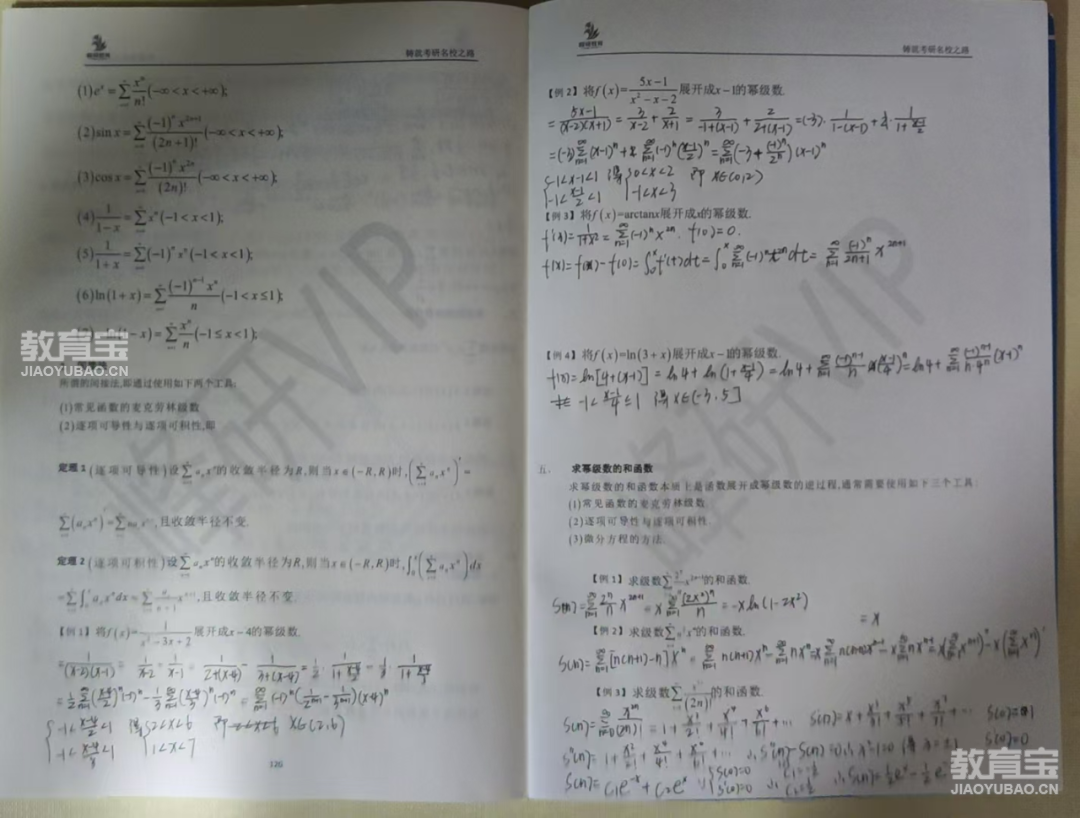 铸就考研名校之路
(1)e^x=∑x^n/n!(-∞<x<+∞);
(2)sin x=∑(-1)^n x^(2n+1)/(2n+1)!(-∞<x<+∞);
(3)cos x=∑(-1)^n x^(2n)/(2n)!(-∞<x<+∞);
(4)1/(1-x)=∑x^n(-1<x<1);
(5)1/(1+x)=∑(-1)^n x^n(-1<x<1);
(6)ln(1+x)=∑(-1)^(n-1) x^n/n(-1<x≤1);
x)=∑x^n/n(-1≤x<1);
教育宝
JIAOYUBAO.CN
所谓的间接法,即通过使用如下两个工具:
(1)常见函数的麦克劳林级数
(2)逐项可导性与逐项可积性,即
定理1(逐项可导性)设∑a_n x^n的收敛半径为R,则当x∈(-R,R)时,(∑a_n x^n)'=
∑(a_n x^n)'=∑na_n x^(n-1),且收敛半径不变.
定理2(逐项可积性)设∑a_n x^n的收敛半径为R,则当x∈(-R,R)时,∫(∑a_n x^n)dx
=∑∫a_n x^n dx=∑a_n/(n+1) x^(n+1),且收敛半径不变.
【例1】将f(x)=1/(x²-3x+2)展开成x-4的幂级数.
=1/((x-2)(x-1))=1/(x-2)-1/(x-1)=1/(2+(x-4))-1/(3+(x-4))=1/2·1/(1+(x-4)/2)-1/3·1/(1+(x-4)/3)
=1/2∑((x-4)/2)^n(-1)^n-1/3∑((x-4)/3)^n(-1)^n=∑(-1)^n(1/2^(n+1)-1/3^(n+1))(x-4)^n
{-1<(x-4)/2<1 得{2<x<6 即 x∈(2,6)
-1<(x-4)/3<1 1<x<7
126
铸就考研名校之路
【例2】将f(x)=(5x-1)/(x²-x-2)展开成x-1的幂级数.
=(5x-1)/((x-2)(x+1))=3/(x-2)+2/(x+1)=3/(-1+(x-1))+2/(2+(x-1))=(-3)·1/(1-(x-1))+1/(1+(x-1)/2)
=(-3)∑(x-1)^n+∑(-1)^n((x-1)/2)^n=∑(-3+(-1)^n/2^n)(x-1)^n
{-1<x-1<1 得{0<x<2 即 x∈(0,2)
-1<(x-1)/2<1 -1<x<3
【例3】将f(x)=arctanx展开成x的幂级数.
f'(x)=1/(1+x²)=∑(-1)^n x^(2n). f(0)=0.
f(x)=f(x)-f(0)=∫f'(t)dt=∫∑(-1)^n t^(2n)dt=∑(-1)^n/(2n+1) x^(2n+1)
【例4】将f(x)=ln(3+x)展开成x-1的幂级数.
f(x)=ln[4+(x-1)]=ln4+ln(1+(x-1)/4)=ln4+∑(-1)^(n-1)/n((x-1)/4)^n=ln4+∑(-1)^(n-1)/(n·4^n)(x-1)^n
-1<(x-1)/4≤1 得x∈(-3,5]
五. 求幂级数的和函数
求幂级数的和函数本质上是函数展开成幂级数的逆过程,通常需要使用如下三个工具:
(1)常见函数的麦克劳林级数.
(2)逐项可导性与逐项可积性.
(3)微分方程的方法.
【例1】求级数∑2^n/n x^(2n+1)的和函数.
S(x)=∑2^n/n x^(2n+1)=x∑(2x²)^n/n=-xln(1-2x²)
=x
【例2】求级数∑n²x^n的和函数.
S(x)=∑[n(n+1)-n]x^n=∑n(n+1)x^n-∑nx^n
【例3】求级数∑x^(2n)/(2n)!的和函数.
S(x)=∑x^(2n)/(2n)!=1+x²/2!+x⁴/4!+x⁶/6!+… S'(x)=x+x³/3!+x⁵/5!+x⁷/7!+… S(0)=1
S''(x)=1+x²/2!+x⁴/4!+x⁶/6!+… ∴S''(x)-S(x)=0 ∴λ²-1=0 得λ=±1 S'(0)=0
S(x)=C₁e^(-x)+C₂e^x
教育宝
JIAOYUBAO.CN
峰研VIP
峰研VIP